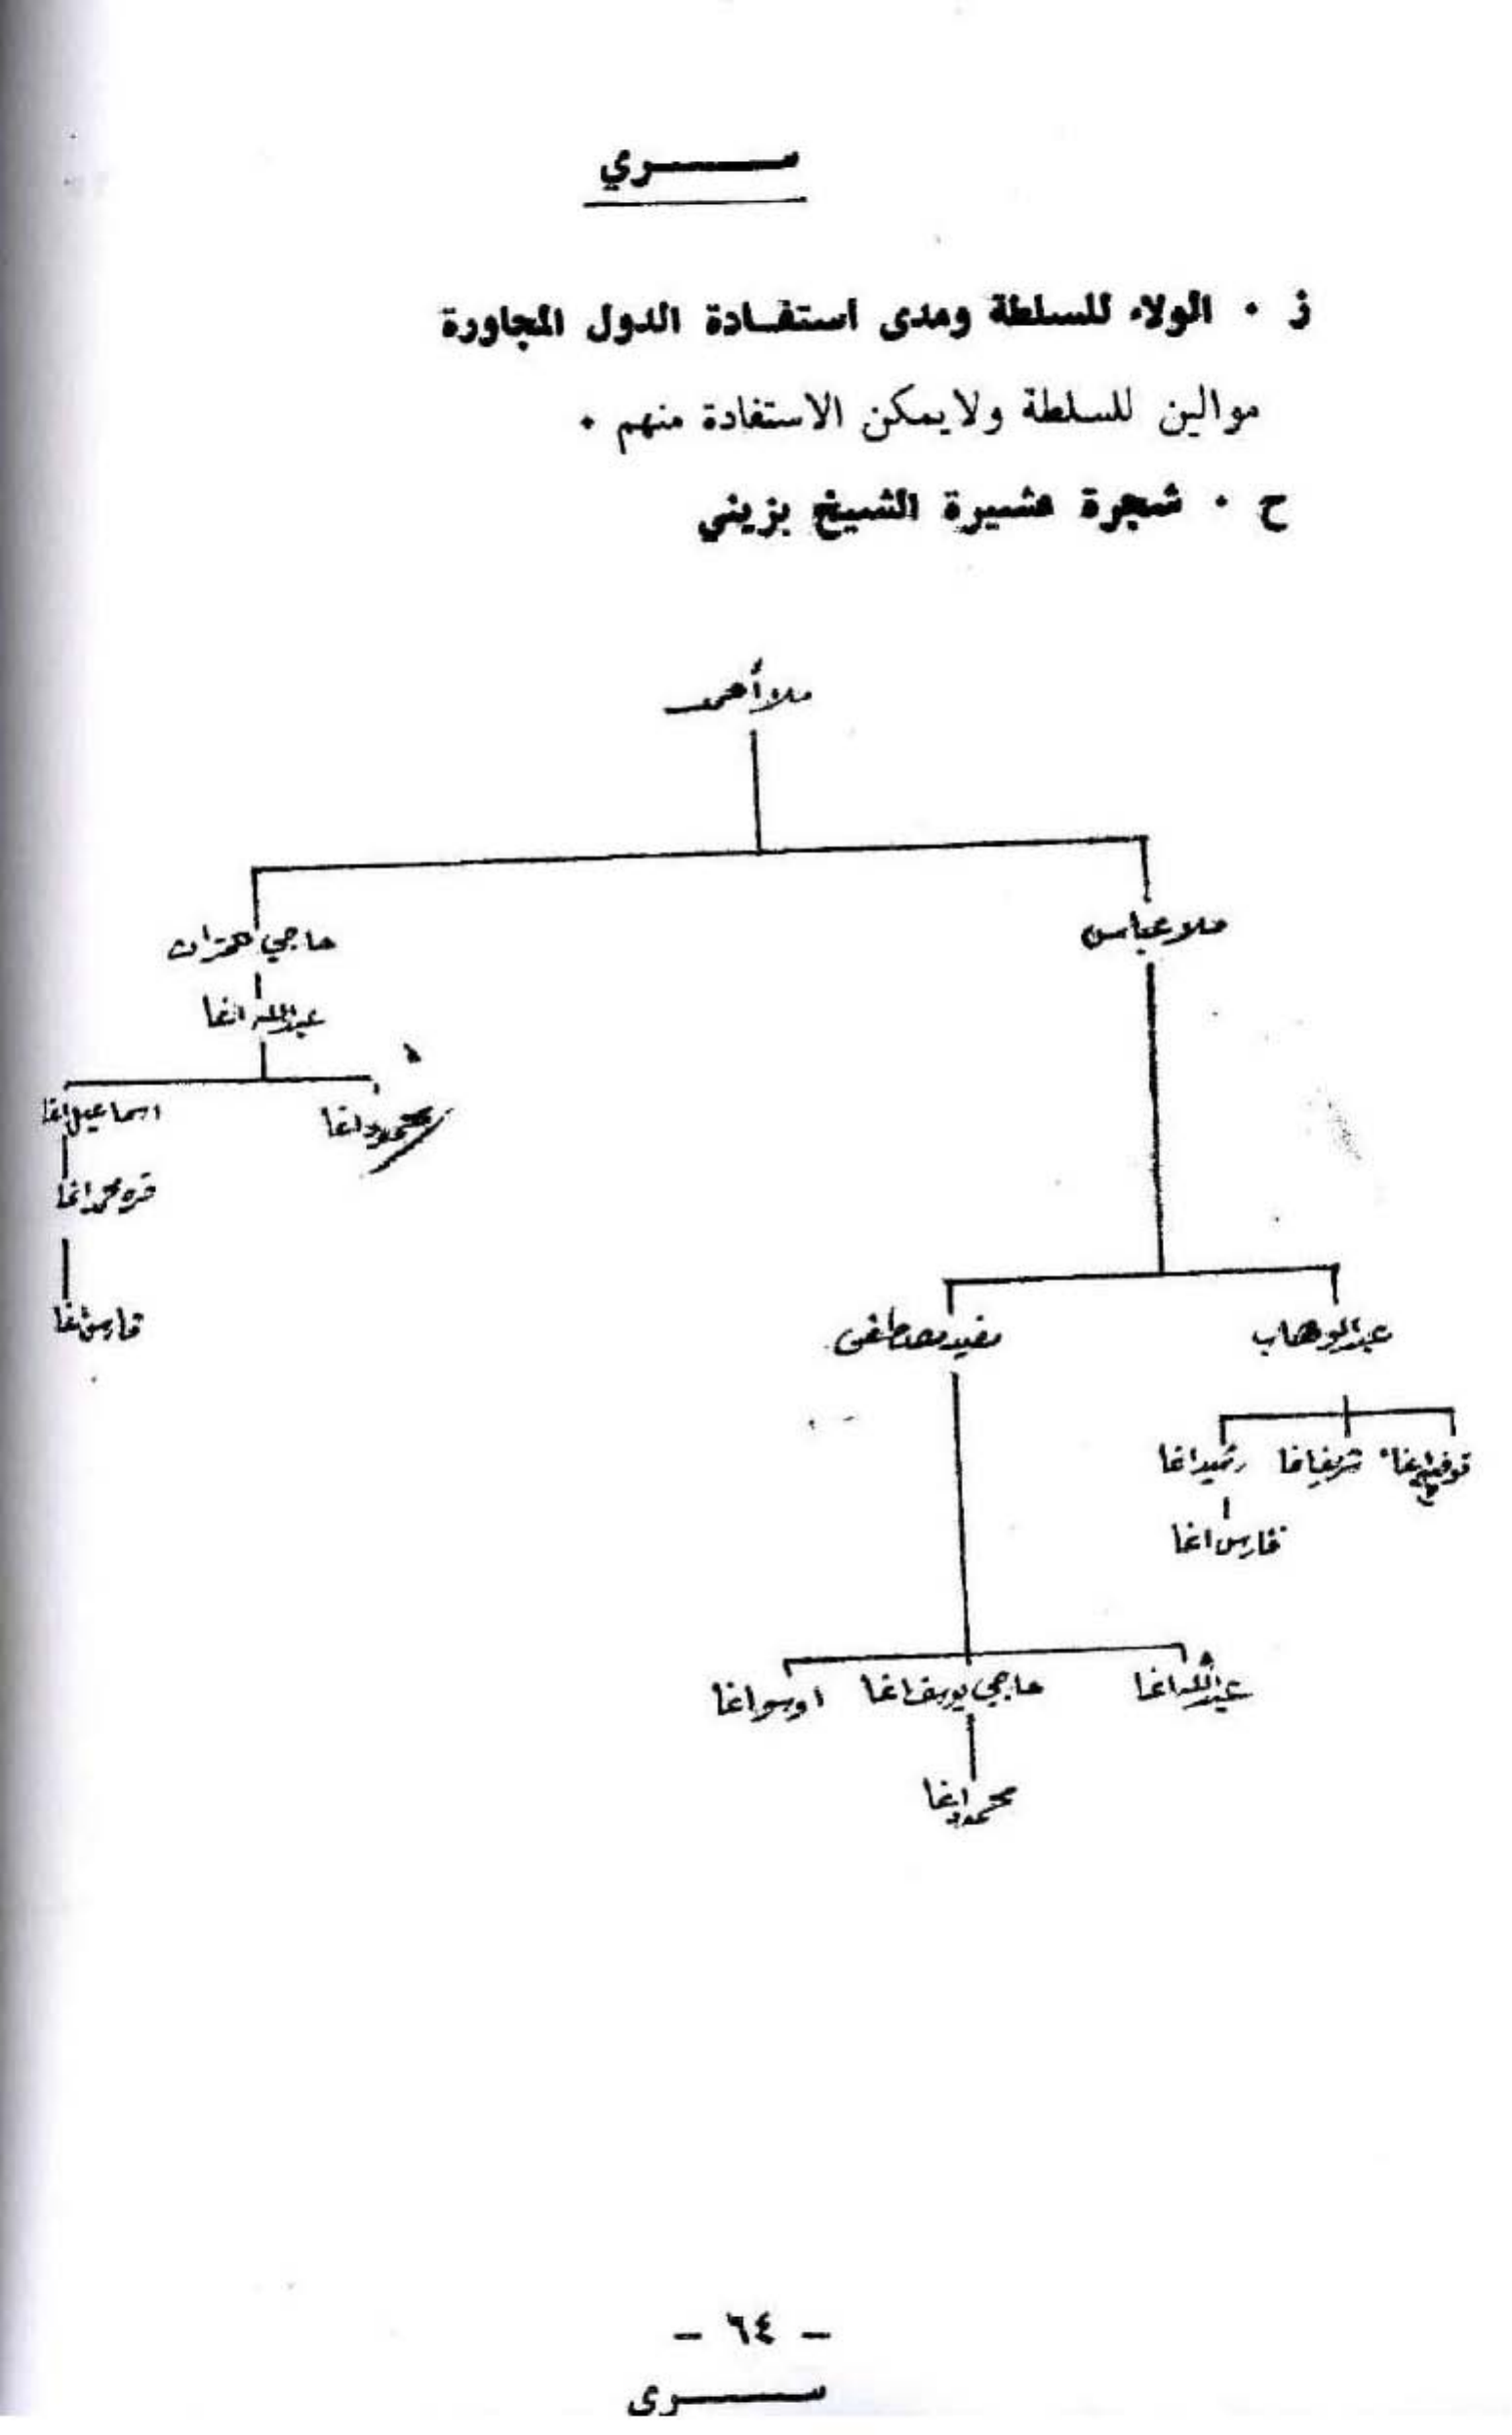 سـري
ز ٠ الولاء للسلطة ومدى استفادة الدول المجاورة
موالين للسلطة ولايمكن الاستفادة منهم ٠
ح ٠ شجرة عشيرة الشيخ بزيني
ملا أحمد
ملا عباس
حاجي
عبدالله اغا
محمود اغا
اسماعيل اغا
قره محمد اغا
فارس اغا
عبدالوهاب
مصطفى
توفيق اغا
شريف اغا
رشيد اغا
فارس اغا
عبدالله اغا
حاجي يوسف اغا
اغا
محمود اغا
- ٦٤ -
سـرى